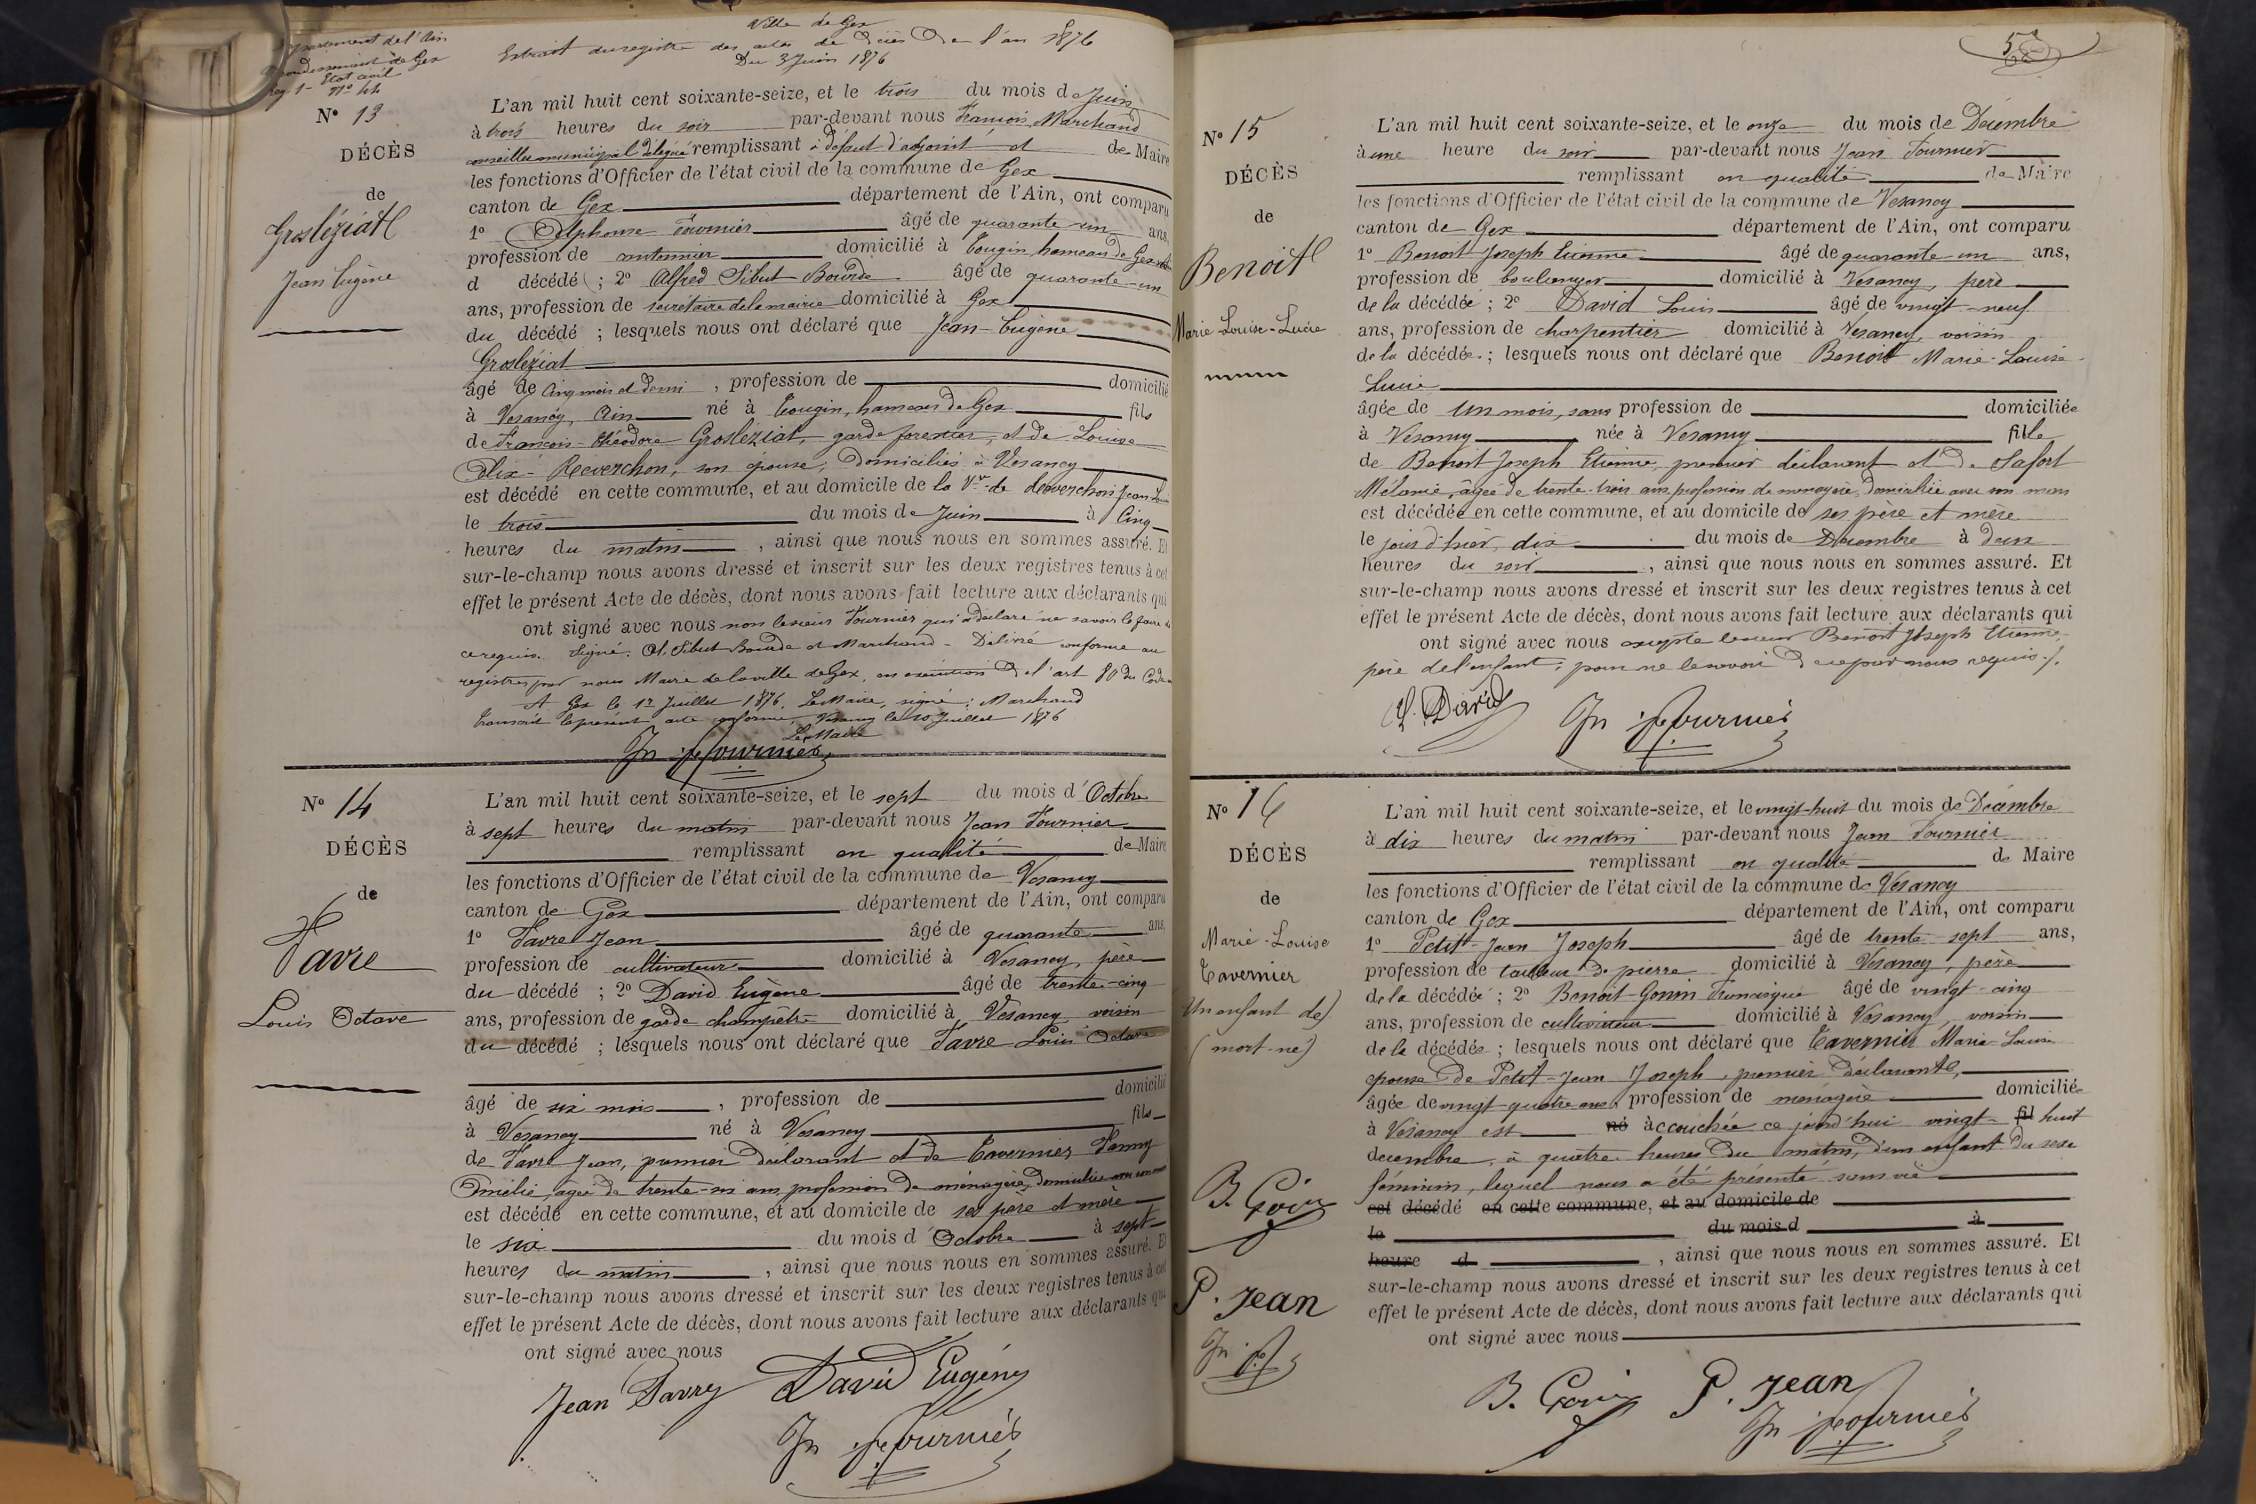 Ville de Gex
Extrait du registre des actes de décès de l'an 1876
Du 3 Juin 1876
de l'Ain
de Gex
Etat civil
N° 44
N° 13
DÉCÈS
de
Grosléziat
Jean Eugène
L'an mil huit cent soixante-seize, et le trois du mois de Juin
à trois heures du soir par-devant nous François Marchand
conseiller municipal délégué remplissant à défaut d'adjoint et de Maire
les fonctions d'Officier de l'état civil de la commune de Gex
canton de Gex département de l'Ain, ont comparu
1° Alphonse Fournier âgé de quarante-un ans,
profession de cantonnier domicilié à Tougin, hameau de Gex
d décédé ; 2° Alfred Sibut Bourde âgé de quarante-un
ans, profession de secrétaire de la mairie domicilié à Gex
du décédé ; lesquels nous ont déclaré que Jean-Eugène
Grosléziat
âgé de cinq mois et demi , profession de domicilié
à Vesancy, Ain né à Tougin, hameau de Gex fils
de François-Théodore Grosléziat, garde forestier, et de Louise
Alix Reverchon, son épouse, domiciliés à Vesancy
est décédé en cette commune, et au domicile de la Vve de Reverchon Jean
le trois du mois de Juin à Cinq
heures du matin , ainsi que nous nous en sommes assuré. Et
sur-le-champ nous avons dressé et inscrit sur les deux registres tenus à cet
effet le présent Acte de décès, dont nous avons fait lecture aux déclarants qui
ont signé avec nous non le sieur Fournier qui a déclaré ne savoir le faire de
ce requis. Signé : Al. Sibut Bourde et Marchand - Délivré conforme au
registre par nous Maire de la ville de Gex, en exécution de l'art 80 du Code
A Gex le 1er Juillet 1876. Le Maire, signé : Marchand
Transcrit le présent acte conforme, Vesancy le 10 Juillet 1876
Le Maire
Jn. jh Fournier
N° 14
DÉCÈS
de
Favre
Louis Octave
L'an mil huit cent soixante-seize, et le sept du mois d'Octobre
à sept heures du matin par-devant nous Jean Fournier
remplissant en qualité de Maire
les fonctions d'Officier de l'état civil de la commune de Vesancy
canton de Gex département de l'Ain, ont comparu
1° Favre Jean âgé de quarante ans,
profession de cultivateur domicilié à Vesancy, père
du décédé ; 2° David Eugène âgé de trente-cinq
ans, profession de garde champêtre domicilié à Vesancy, voisin
du décédé ; lesquels nous ont déclaré que Favre Louis Octave
âgé de six mois , profession de domicilié
à Vesancy né à Vesancy fils
de Favre Jean, premier déclarant et de Tavernier Fanny
Amélie, âgée de trente-six ans profession de ménagère, domiciliée avec son mari
est décédé en cette commune, et au domicile de ses père et mère
le six du mois d'Octobre à sept
heures du matin , ainsi que nous nous en sommes assuré. Et
sur-le-champ nous avons dressé et inscrit sur les deux registres tenus à cet
effet le présent Acte de décès, dont nous avons fait lecture aux déclarants qui
ont signé avec nous
Jean Favre David Eugène
Jn jh Fournier
N° 15
DÉCÈS
de
Benoit
Marie Louise-Lucie
L'an mil huit cent soixante-seize, et le onze du mois de Décembre
à une heure du soir par-devant nous Jean Fournier
remplissant en qualité de Maire
les fonctions d'Officier de l'état civil de la commune de Vesancy
canton de Gex département de l'Ain, ont comparu
1° Benoit Joseph Etienne âgé de quarante-un ans,
profession de boulanger domicilié à Vesancy, père
de la décédée ; 2° David Louis âgé de vingt-neuf
ans, profession de charpentier domicilié à Vesancy, voisin
de la décédée ; lesquels nous ont déclaré que Benoit Marie-Louise
Lucie
âgée de un mois, sans profession de domiciliée
à Vesancy née à Vesancy fille
de Benoit Joseph Etienne, premier déclarant et de Lafort
Mélanie, âgée de trente-trois ans profession de ménagère, domiciliée avec son mari
est décédée en cette commune, et au domicile de ses père et mère
le jour d'hier, dix du mois de Décembre à deux
heures du soir , ainsi que nous nous en sommes assuré. Et
sur-le-champ nous avons dressé et inscrit sur les deux registres tenus à cet
effet le présent Acte de décès, dont nous avons fait lecture aux déclarants qui
ont signé avec nous excepté le sieur Benoit Joseph Etienne,
père de l'enfant, pour ne le savoir de ce par nous requis.
L. David Jn jh Fournier
N° 16
DÉCÈS
de
Marie-Louise
Tavernier
(Un enfant de)
(mort-né)
B. Goin
P. Jean
Jn jh F
L'an mil huit cent soixante-seize, et le vingt-huit du mois de Décembre
à dix heures du matin par-devant nous Jean Fournier
remplissant en qualité de Maire
les fonctions d'Officier de l'état civil de la commune de Vesancy
canton de Gex département de l'Ain, ont comparu
1° Petit-Jean Joseph âgé de trente-sept ans,
profession de tailleur de pierre domicilié à Vesancy, père
de la décédée ; 2° Benoit-Gonin Françisque âgé de vingt-cinq
ans, profession de cultivateur domicilié à Vesancy, voisin
de la décédée ; lesquels nous ont déclaré que Tavernier Marie-Louise
épouse de Petit-Jean Joseph, premier déclarant,
âgée de vingt-quatre ans, profession de ménagère domiciliée
à Vesancy est né accouchée ce jourd'hui vingt- fil huit
décembre, à quatre heures du matin, d'un enfant du sexe
féminin, lequel nous a été présenté sans vie
est décédé en cette commune, et au domicile de
le du mois d à
heure d , ainsi que nous nous en sommes assuré. Et
sur-le-champ nous avons dressé et inscrit sur les deux registres tenus à cet
effet le présent Acte de décès, dont nous avons fait lecture aux déclarants qui
ont signé avec nous
B. Goin P. Jean
Jn jh Fournier